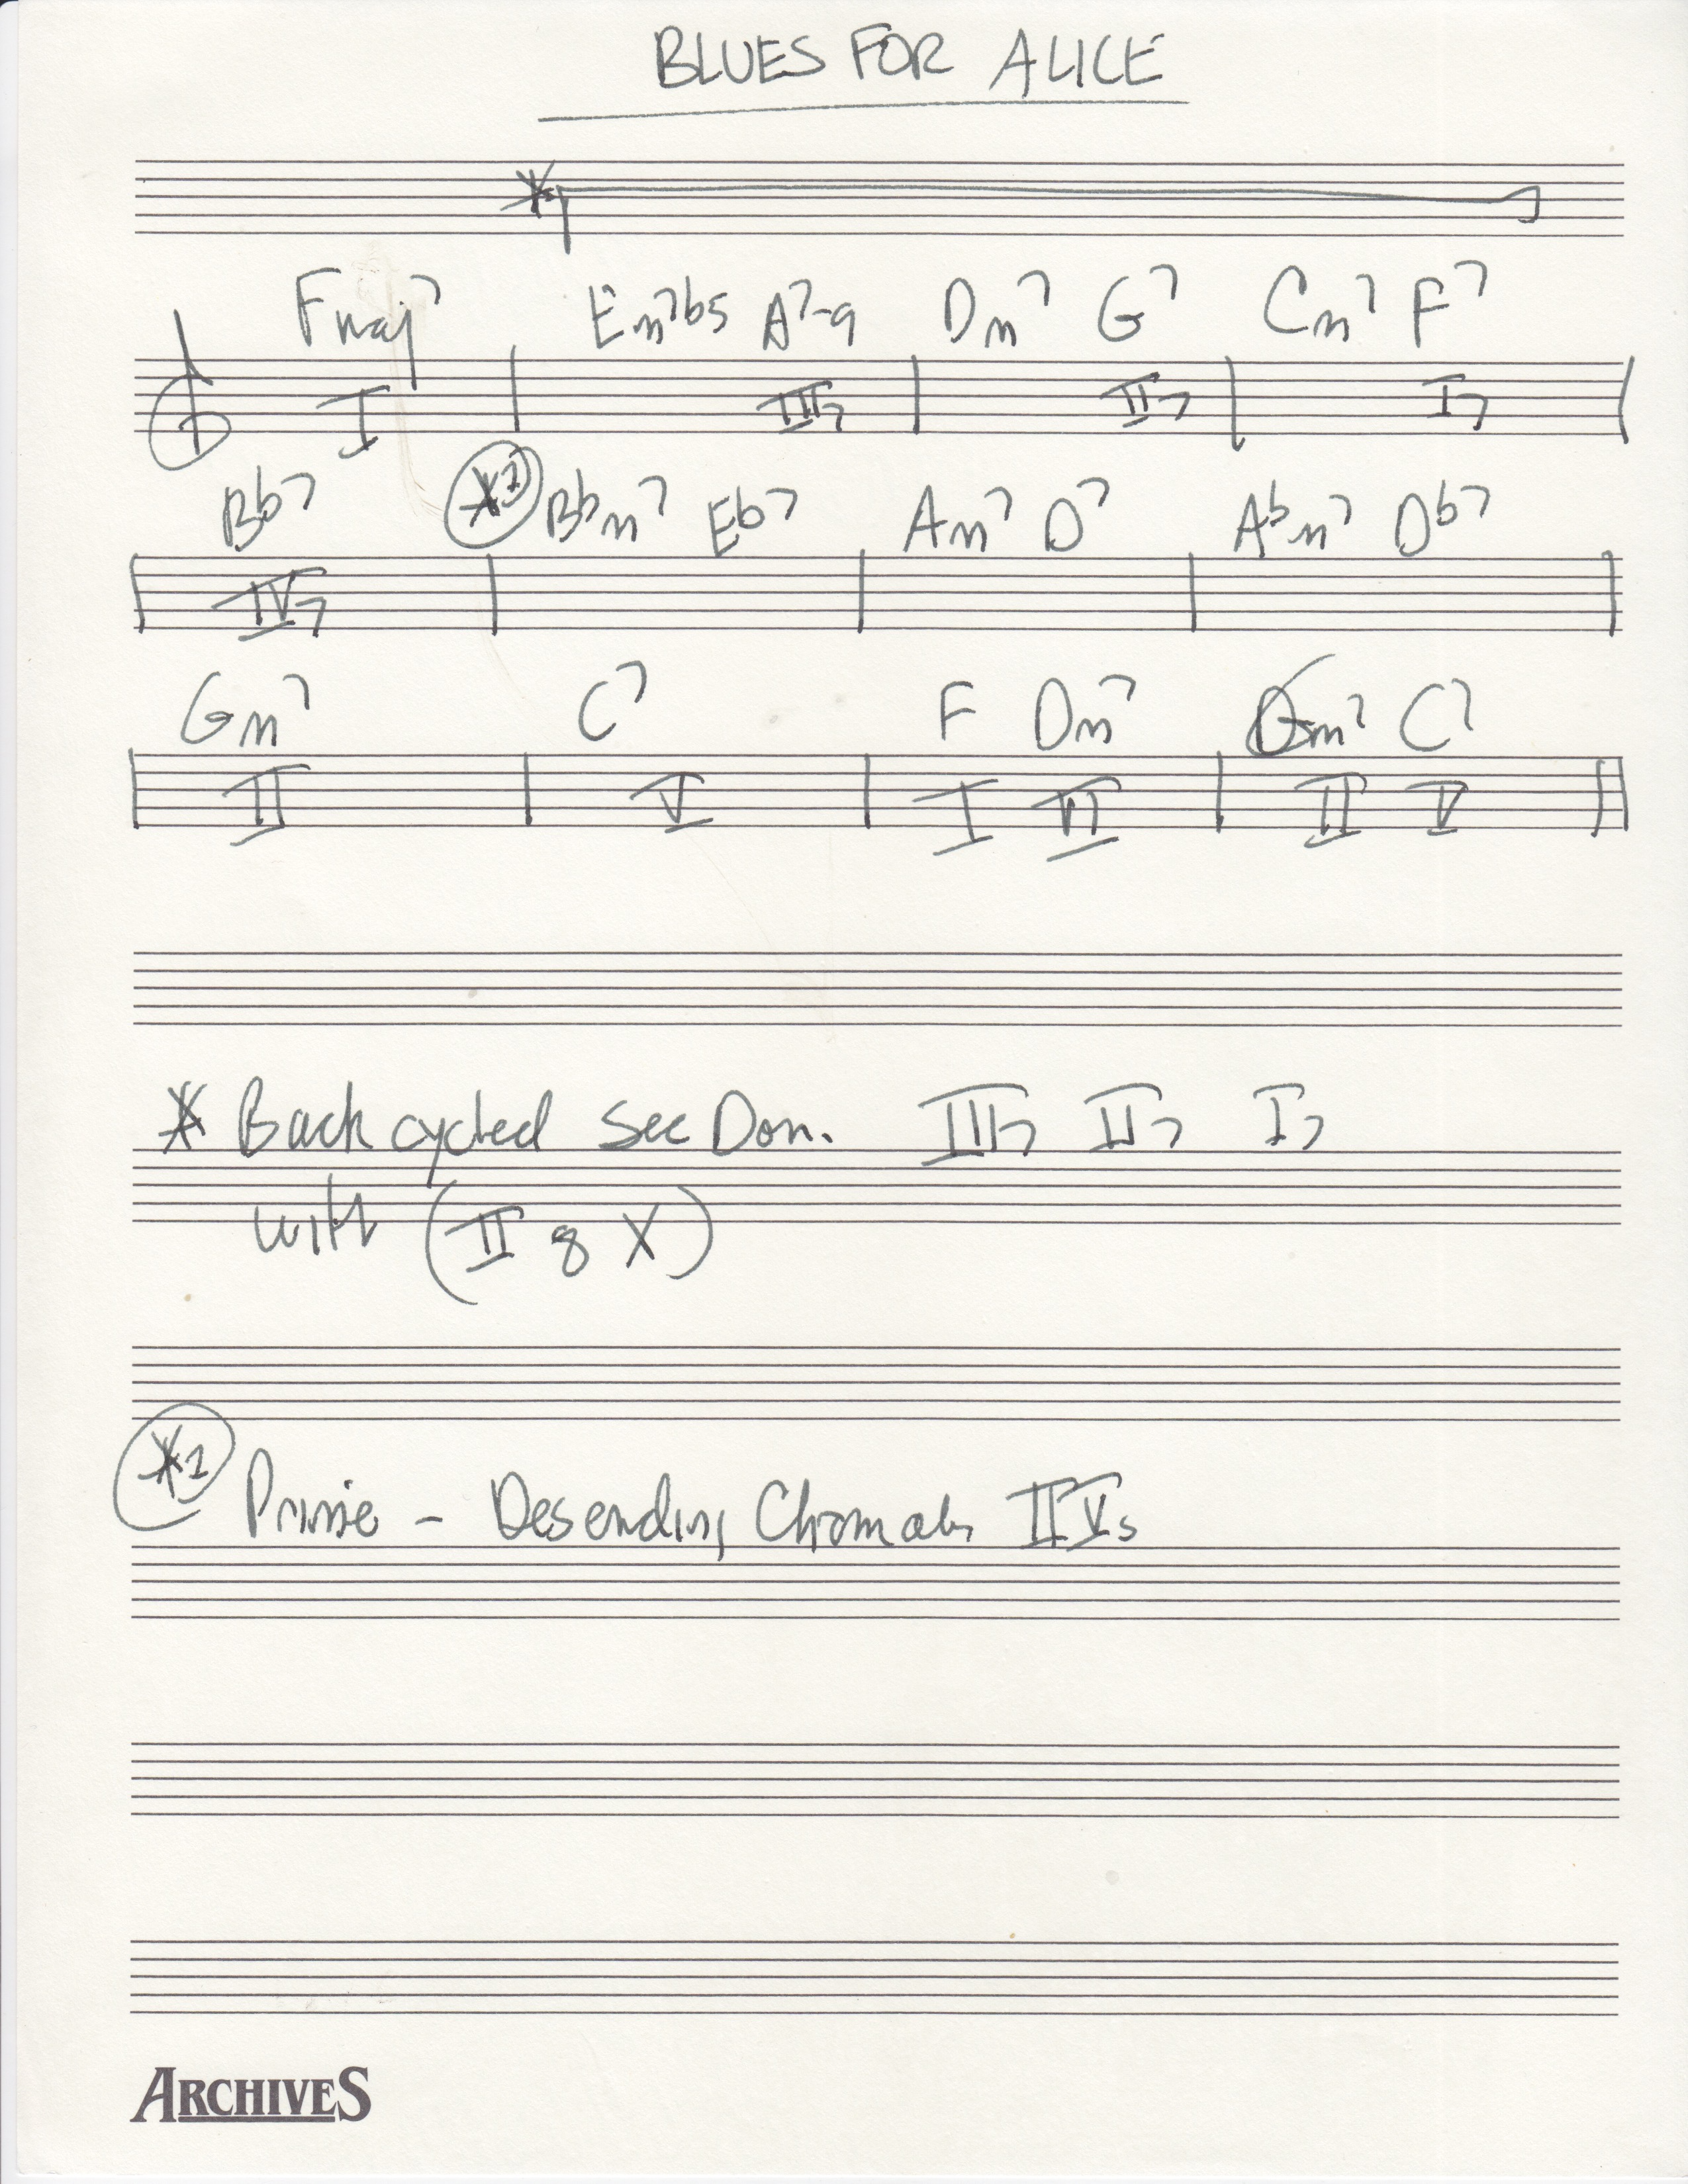 BLUES FOR ALICE
*
Fmaj7 Em7b5 A7-9 Dm7 G7 Cm7 F7
I III7 II7 I7
Bb7 *1 Bbm7 Eb7 Am7 D7 Abm7 Db7
IV7
Gm7 C7 F Dm7 Gm7 C7
II V I VI II V
* Back cycled Sec Dom. III7 II7 I7
with (II & X)
*1 Desending Chromatic IIVs
ARCHIVES